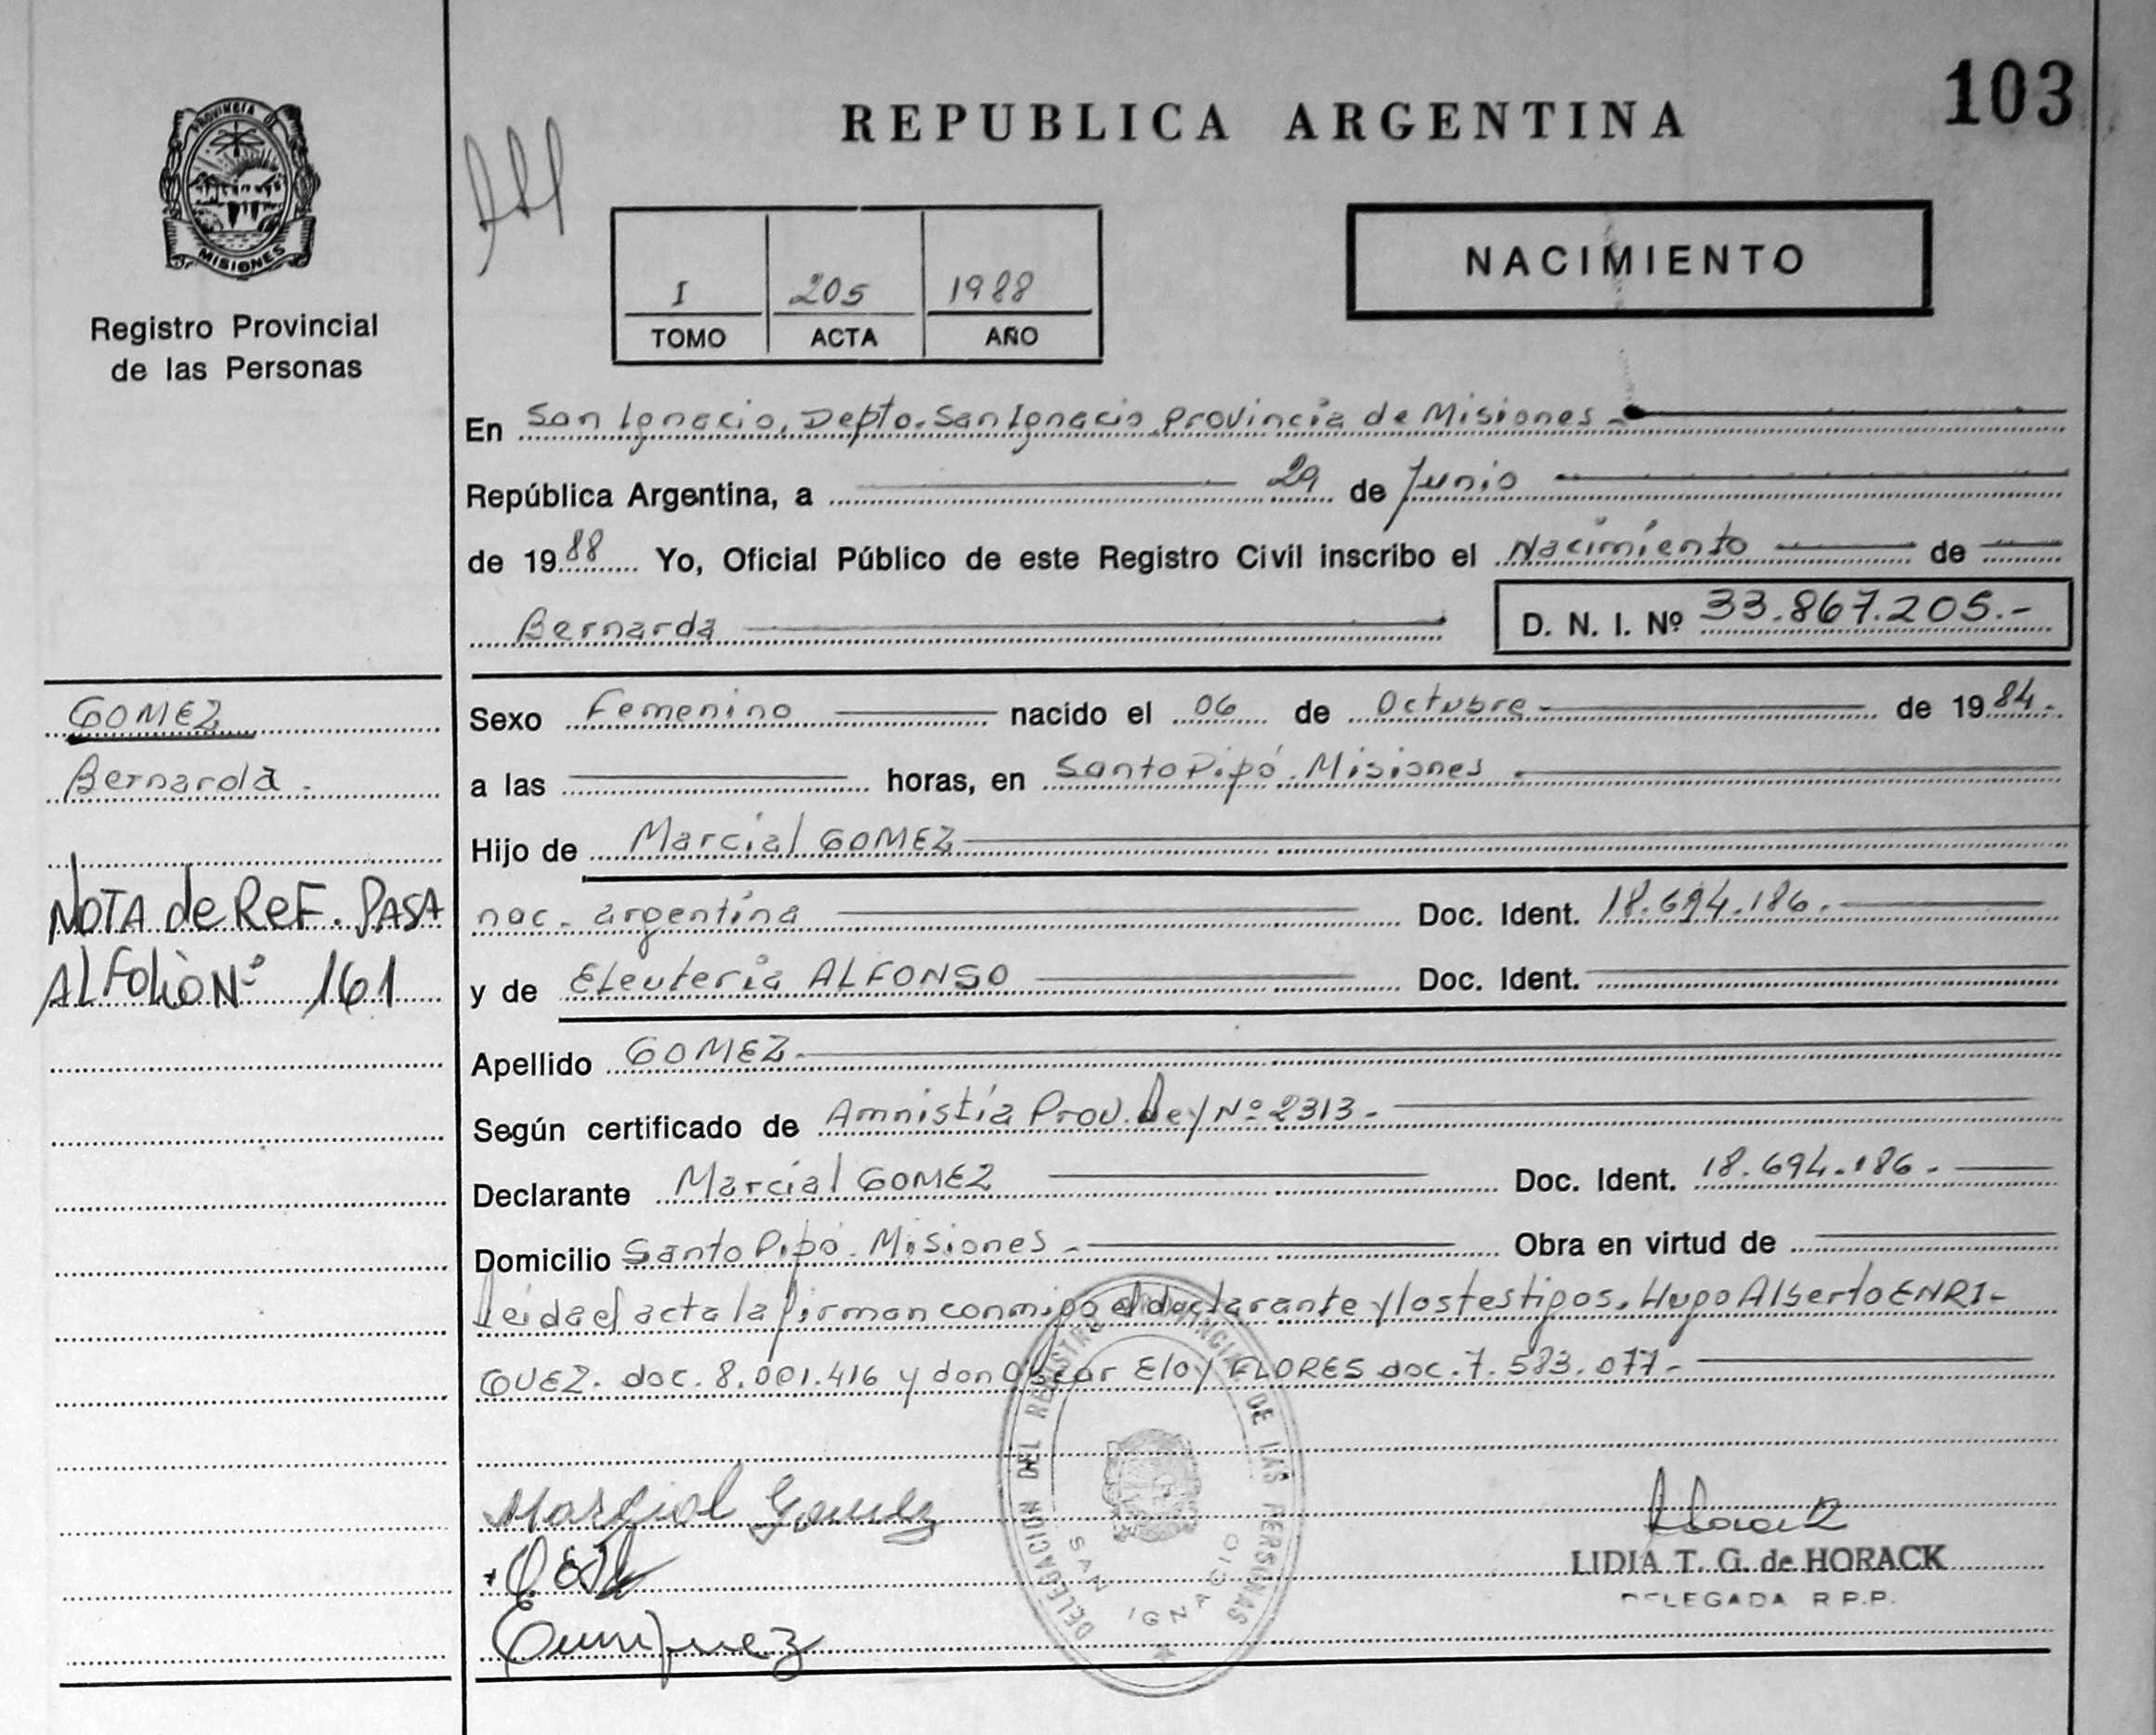 103
REPUBLICA ARGENTINA
PROVINCIA DE
MISIONES
Registro Provincial
de las Personas
I 205 1988
TOMO ACTA AÑO
NACIMIENTO
En San Ignacio, Depto. San Ignacio Provincia de Misiones -
República Argentina, a 29 de Junio
de 1988 Yo, Oficial Público de este Registro Civil inscribo el Nacimiento de
Bernarda D. N. I. Nº 33.867.205.-
GOMEZ
Bernarda.
NOTA de ReF. PASA
AL Folio Nº 161
Sexo Femenino nacido el 06 de Octubre de 1984.
a las horas, en Santo Pipó. Misiones
Hijo de Marcial GOMEZ
nac. argentina Doc. Ident. 18.694.186.
y de Eleuteria ALFONSO Doc. Ident.
Apellido GOMEZ
Según certificado de Amnistía Prov. Ley Nº 2313.
Declarante Marcial GOMEZ Doc. Ident. 18.694.186.
Domicilio Santo Pipó. Misiones Obra en virtud de
Leida el acta la firman conmigo el declarante y los testigos. Hugo Alberto ENRI-
QUEZ. doc. 8.001.416 y don Oscar Eloy FLORES doc. 7.583.077-
DELEGACION DEL REGISTRO PROVINCIAL DE LAS PERSONAS
SAN IGNACIO
Marcial Gomez
Enriquez
LIDIA T. G. de HORACK
DELEGADA R.P.P.